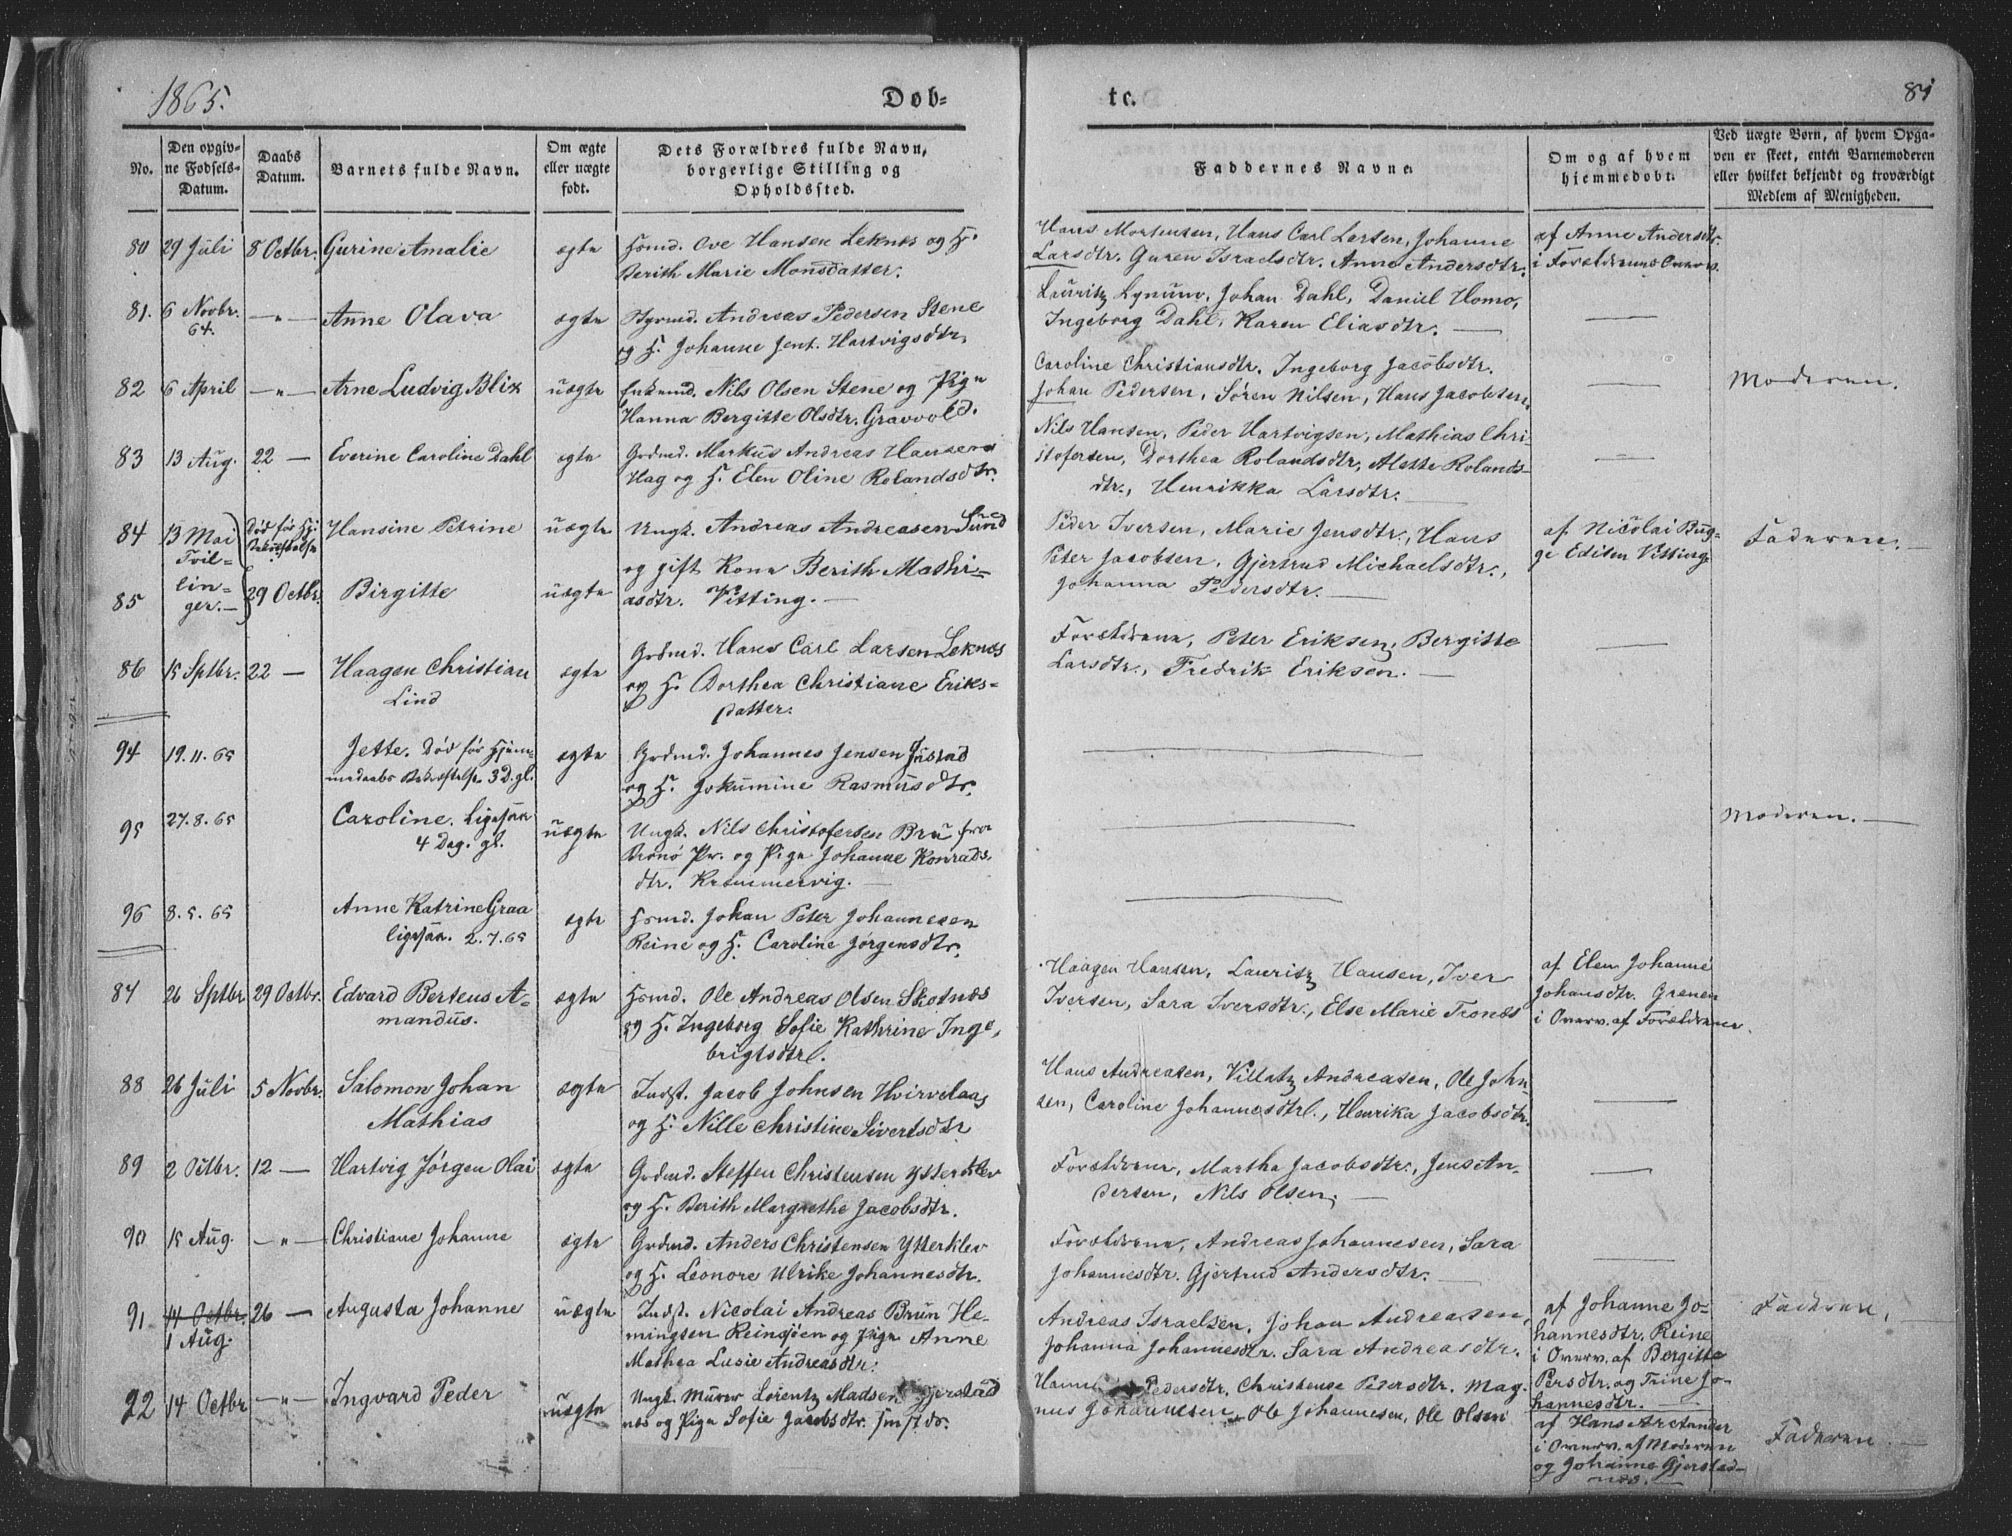 1865.
Døb-
No.
Den opgiv-
ne Fødsels-
Datum.
Daabs
Datum.
Barnets fulde Navn.
Om ægte
eller uægte
født.
Dets Forældres fulde Navn,
borgerlige Stilling og
Opholdssted.
80 29 Juli 8 Octbr. Gurine Amalie ægte Hsmd. Ove Hansen Leknes og H.
Berith Marie Monsdatter.
81. 6 Novbr. 64. —"— Anne Olava ægte Andreas Pedersen Stene
og H. Johanne Hartvigsdtr.
82 6 April —"— Arne Ludvig Blix uægte Enkemd. Nils Olsen Stene og Pige
Hanna Bergitte Olsdtr. Gravvold.
83 13 Aug. 22 — Everine Caroline Dahl ægte Grdmd. Markus Andreas Hansen
Hag og H. Elen Oline Rolandsdtr.
84 13 Mai Død før Hj: Bekræftelse Hansine Petrine uægte Ungk. Andreas Andreasen Sund
Tvil-
lin-
ger.—
og gift Kone Berith Mathi-
85 29 Octbr. Birgitte uægte asdtr. Vitting. —
86 15 Sptbr. 22 — Haagen Christian
Lind ægte Grdmd. Hans Carl Larsen Leknes
og H. Dorthea Christiane Eriks-
datter.
94 19.11.65 Jette. Død før Hjem-
medaabs Bekræftelse 3 D. gl. ægte Grdmd. Johannes Jensen
og H. Jokumine Rasmusdtr.
95 27.8.65 Caroline.
4 Dag. gl. uægte Ungk. Nils Christofersen Bru fra
Brønø Pr. og Pige Johanne Konrads-
dtr. Kremmervig. —
96 8.5.65 Anne Katrine Graa
2.7.65 ægte Hsmd. Johan Peter Johannesen
Reine og H. Caroline Jørgensdtr.
87 26 Sptbr 29 Octbr. Edvard Berteus A-
mandus. ægte Hsmd. Ole Andreas Olsen Skotnes
og H. Ingeborg Sofie Kathrine Inge-
brigtsdtr.
88 26 Juli 5 Novbr. Salomon Johan
Mathias ægte Indst. Jacob Johnsen Hvirvelaas
og H. Nille Christine Sivertsdtr
89 2 Octbr. 12 — Hartvig Jørgen Olai ægte Grdmd. Steffen Christensen Ytterklev
og H. Berith Margrethe Jacobsdtr.
90 15 Aug. —"— Christiane Johanne ægte Grdmd. Anders Christensen Ytterklev
og H. Leonore Ulrike Johannesdtr.
91 14 Octbr. 26 — Augusta Johanne uægte Indst. Nicolai Andreas Brun He-
1 Aug.
mingsen Reinsjøen og Pige Anne
Mathea Lusie Andreasdtr.
92 14 Octbr —"— Ingvard Peder uægte Ungk. Murer Lorentz Madsen Gjerstad
nes og Pige Sofie Jacobsdtr.
te.
81
Faddernes Navne.
Om og af hvem
hjemmedøbt.
Ved uægte Børn, af hvem Opga-
ven er skeet, enten Barnemoderen
eller hvilket bekjendt og troværdigt
Medlem af Menigheden.
Hans Mortensen, Hans Carl Larsen, Johanne
Larsdtr. Guren Israelsdtr. Anne Andersdtr.
af Anne Andersdtr.
i Forældrenes Overv.
Lauritz Johan Dahl, Daniel Homo,
Ingeborg Dahl, Karen Eliasdtr. —
Caroline Christiansdtr. Ingeborg Jacobsdtr.
Johan Pedersen, Søren Nilsen, Hans Jacobsen.
Moderen.
Nils Hansen, Peder Hartvigsen, Mathias Chri-
stofersen, Dorthea Rolandsdtr, Alette Rolands-
dtr., Henrikka Larsdtr.
Peder Iversen, Marie Jensdtr., Hans
Peter Jacobsen, Gjertrud Michaelsdtr.,
Johanna Pedersdtr. —
af Nicolai Bug-
ge Editen Vitting.
Faderen. —
Forældrene, Peter Eriksen, Bergitte
Larsdtr., Fredrik Eriksen. —
Moderen. —
Haagen Hansen, Lauritz Hansen, Iver
Iversen, Sara Iversdtr., Else Marie Trones
af Elen Johanne
Johansdtr. Grenen
i Overv. af Forældrene.
Hans Andreasen, Villatz Andreasen, Ole John-
sen, Caroline Johannesdtr., Henrika Jacobsdtr.
Forældrene, Martha Jacobsdtr., Jens An-
dersen, Nils Olsen. —
Forældrene, Andreas Johannesen, Sara
Johannesdtr. Gjertrud Andersdtr. —
Andreas Israelsen, Johan Andreasen,
Johanna Johannesdtr. Sara Andreasdtr.
af Johanne Jo-
hannesdtr. Reine
i Overv. af Bergitte
Persdtr. og Trine Jo-
hannesdtr. —
Faderen.
Pedersdtr. Christense Pedersdtr. Mag-
nus Johannesen, Ole Johannesen, Ole Olsen
af Hans
i Overv. af Moderen
og Johanne Gjerstad-
nes. —
Faderen —